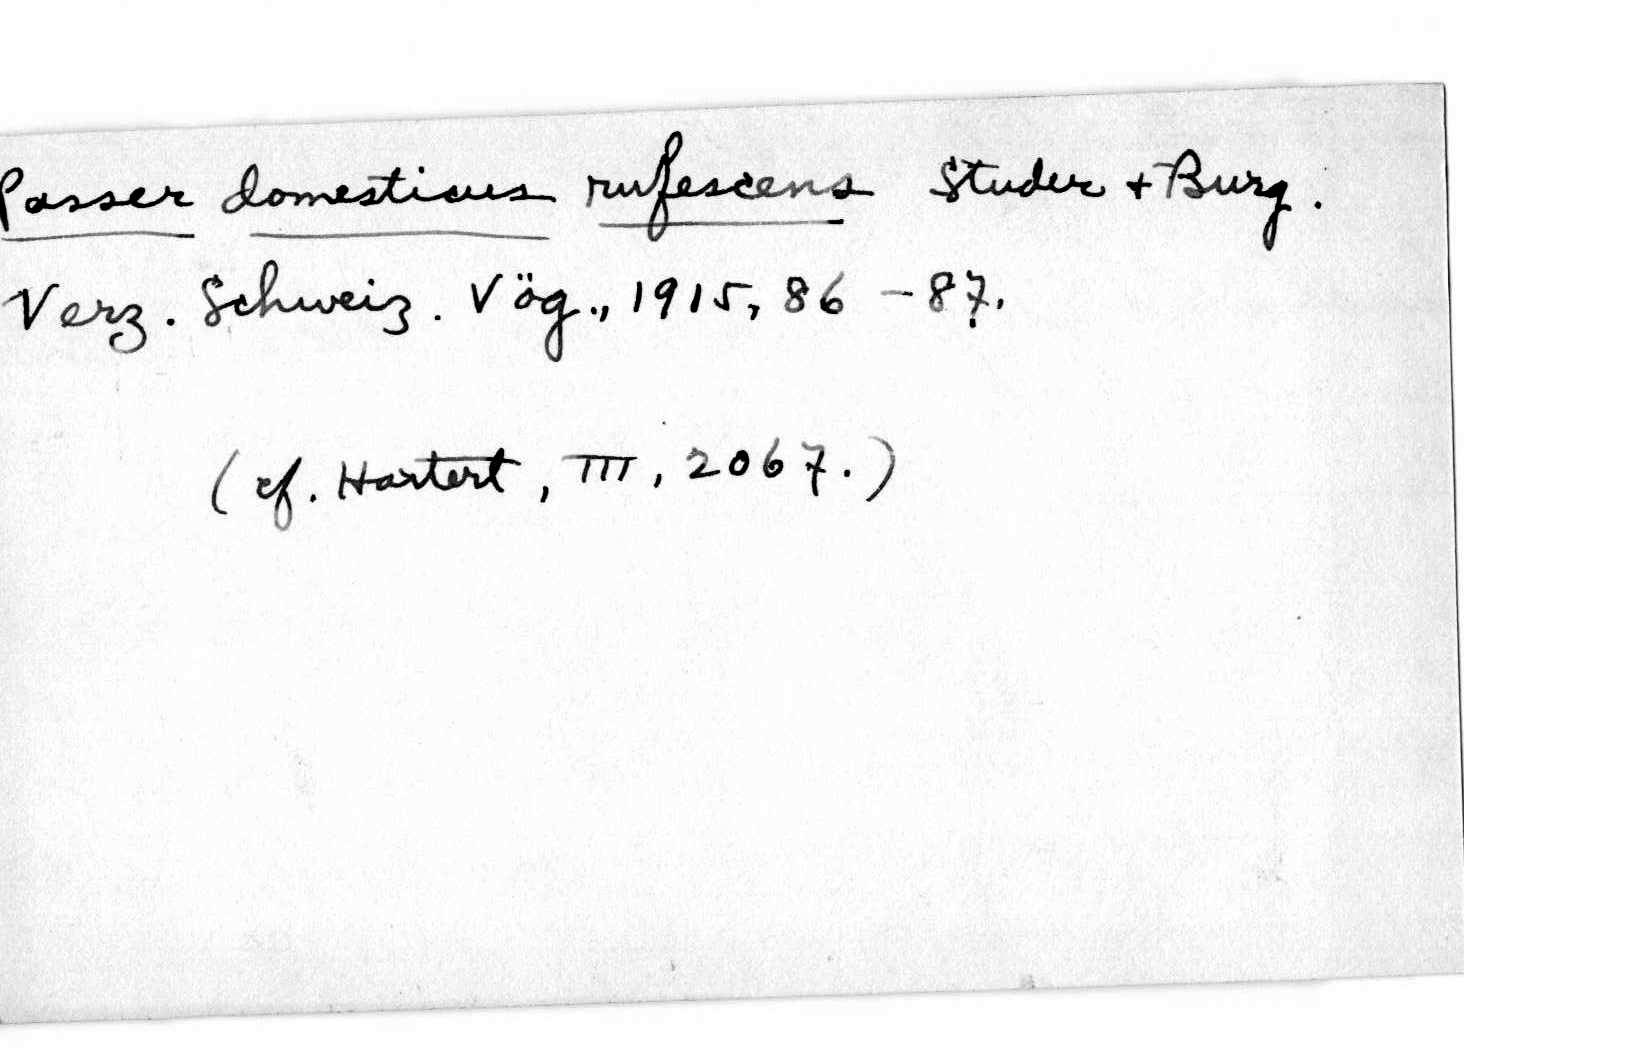 Passer domesticus rufescens Studer + Burg.
Verz. Schweiz. Vög., 1915, 86 - 87.
(cf. Hartert, III, 2067.)